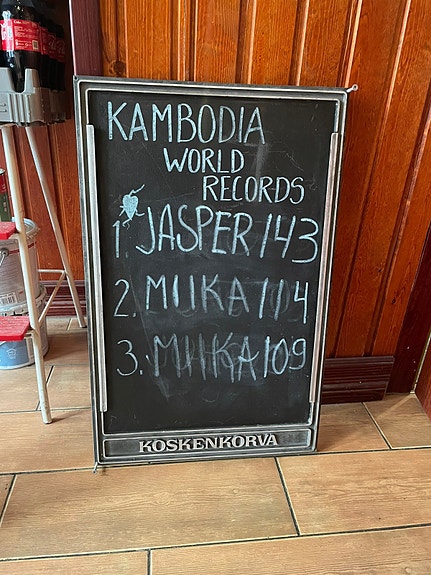 KAMBODIA
WORLD
RECORDS
1. JASPER 143
2. MIIKA 114
3. MIIKA 109
KOSKENKORVA